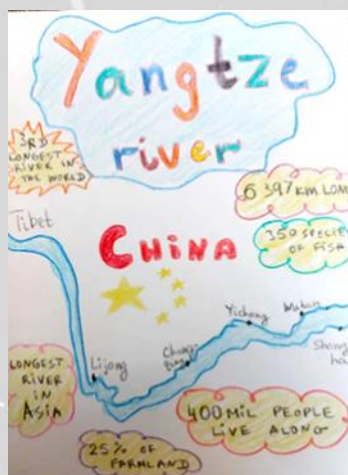 Yangtze
river
3RD
LONGEST
RIVER IN
THE WORLD
6 397 KM LON
350 SPECIE
OF FISH
Tibet
CHINA
Yichang
Wuhan
Shang
hai
Lijang
Chong-
qing
LONGEST
RIVER
IN
ASIA
400 MIL PEOPLE
LIVE ALONG
25% OF
FARMLAND